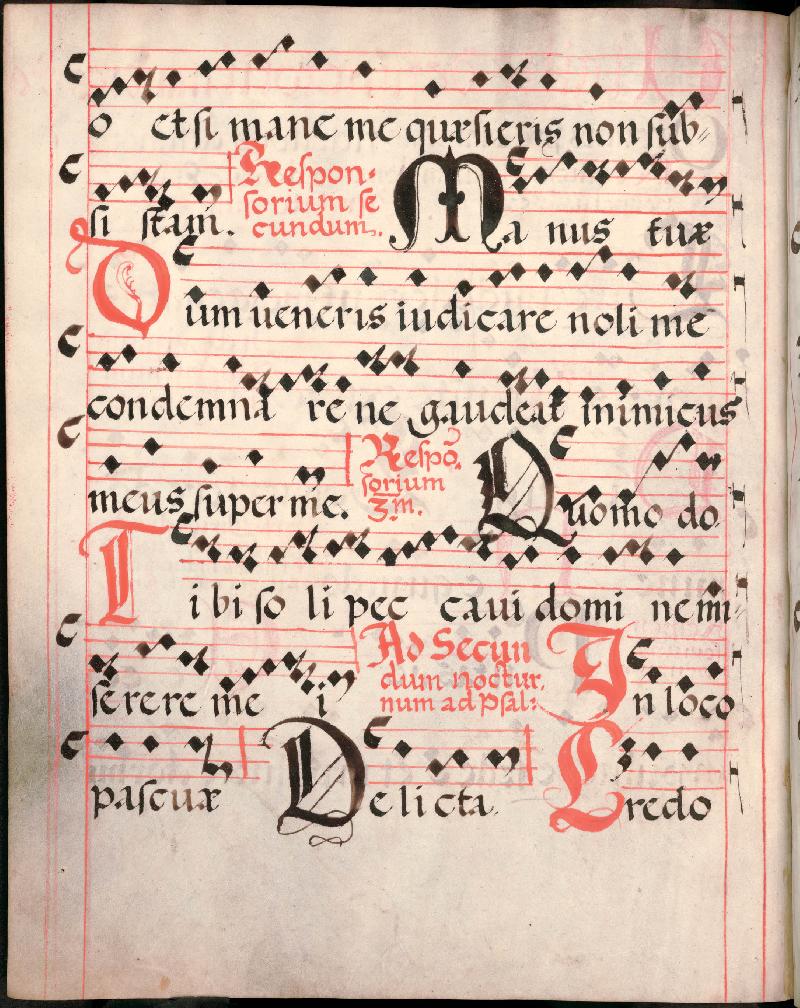 o et si mane me quæsieris non sub〃
si stam. Respon-
sorium se
cundum. Manus tuæ
Dum ueneris iudicare noli me
condemna re ne gaudeat inimicus
meus super me. Respõ
sorium
3m. Quomodo
Tibi soli pec caui domi ne mi
serere me i Ad Secun
dum noctur,
num ad Psal: In loco
pascuæ Delicta Credo